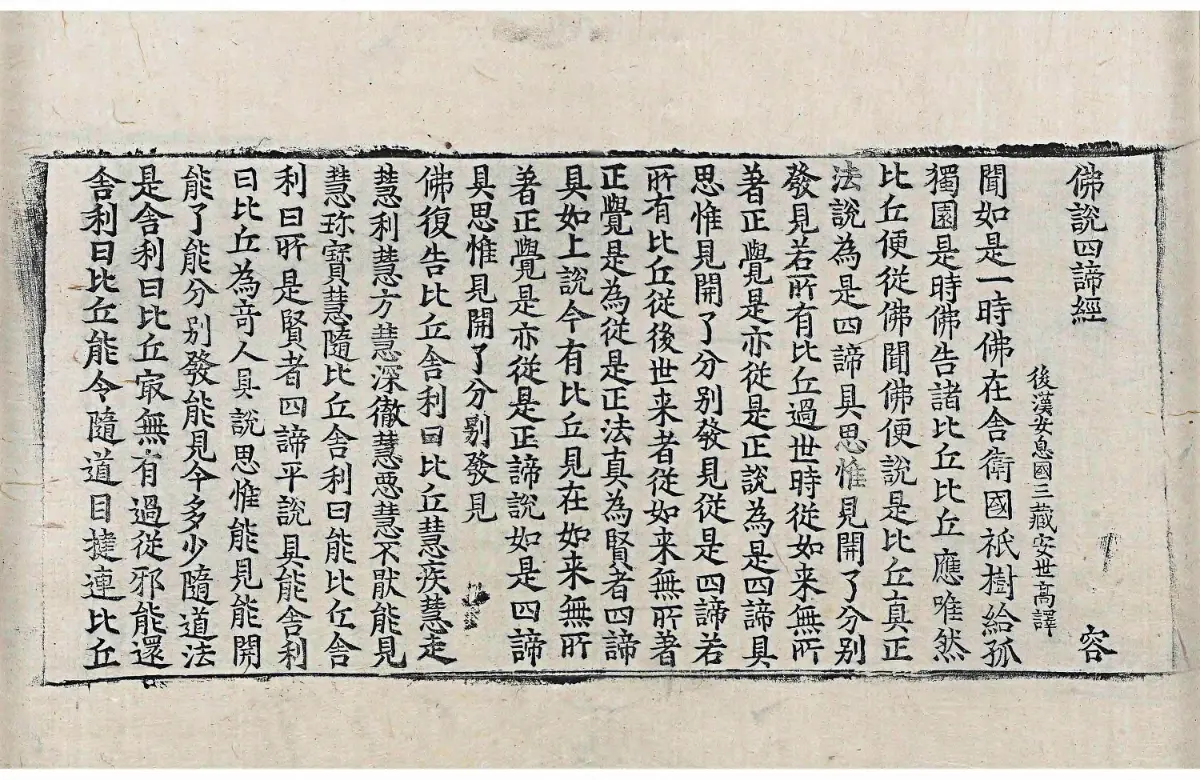 佛說四諦經 容
後漢安息國三藏安世高譯
聞如是一時佛在舍衛國祇樹給孤
獨園是時佛告諸比丘比丘應唯然
比丘便從佛聞佛便說是比丘真正
法說為是四諦具思惟見開了分別
發見若所有比丘過世時從如来無所
著正覺是亦從是正說為是四諦具
思惟見開了分別發見從是四諦若
所有比丘從後世来者從如来無所著
正覺是為從是正法真為賢者四諦
具如上說今有比丘見在如来無所
著正覺是亦從是正諦說如是四諦
具思惟見開了分別發見
佛復告比丘舍利曰比丘慧疾慧走
慧利慧方慧深徹慧悪慧不猒能見
慧珎寶慧隨比丘舍利曰能比丘舍
利曰所是賢者四諦平說具能舍利
曰比丘為竒人具說思惟能見能開
能了能分別發能見今多少隨道法
是舍利曰比丘㝡無有過從邪能還
舍利曰比丘能令隨道目揵連比丘